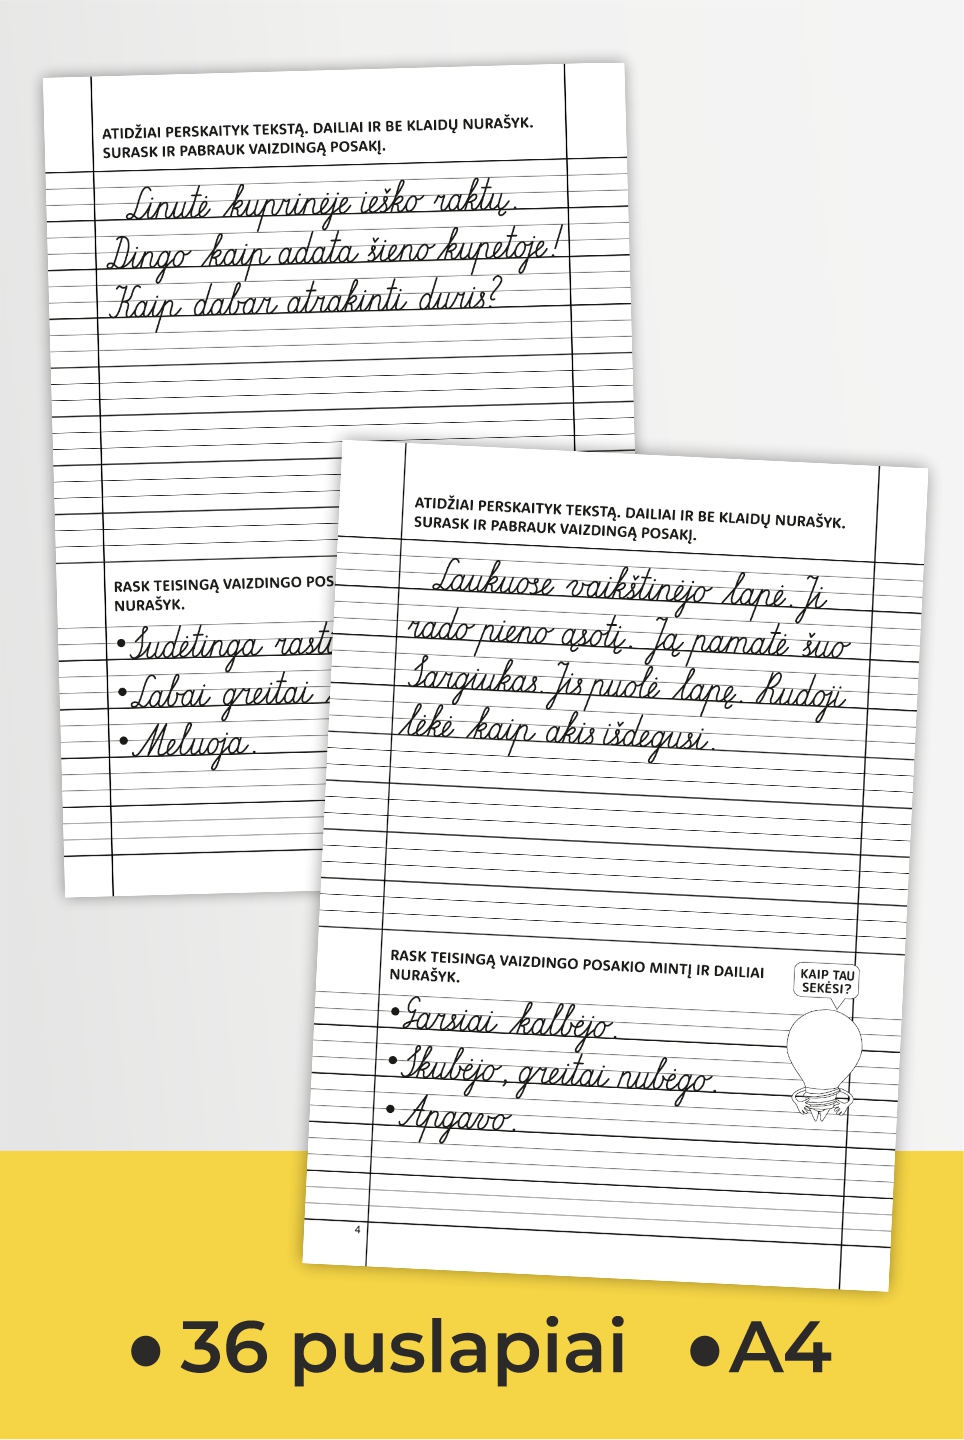 ATIDŽIAI PERSKAITYK TEKSTĄ. DAILIAI IR BE KLAIDŲ NURAŠYK.
SURASK IR PABRAUK VAIZDINGĄ POSAKĮ.
Linutė kuprinėje ieško raktų.
Dingo kaip adata šieno kupetoje!
Kaip dabar atrakinti duris?
RASK TEISINGĄ VAIZDINGO POS
NURAŠYK.
• Sudėtinga rasti
• Labai greitai
• Meluoja.
ATIDŽIAI PERSKAITYK TEKSTĄ. DAILIAI IR BE KLAIDŲ NURAŠYK.
SURASK IR PABRAUK VAIZDINGĄ POSAKĮ.
Laukuose vaikštinėjo lapė. Ji
rado pieno ąsotį. Ją pamatė šuo
Sargiukas. Jis puolė lapę. Rudoji
lėkė kaip akis išdegusi.
RASK TEISINGĄ VAIZDINGO POSAKIO MINTĮ IR DAILIAI
NURAŠYK.
KAIP TAU
SEKĖSI?
• Garsiai kalbėjo.
• Skubėjo, greitai nubėgo.
• Apgavo.
4
• 36 puslapiai • A4